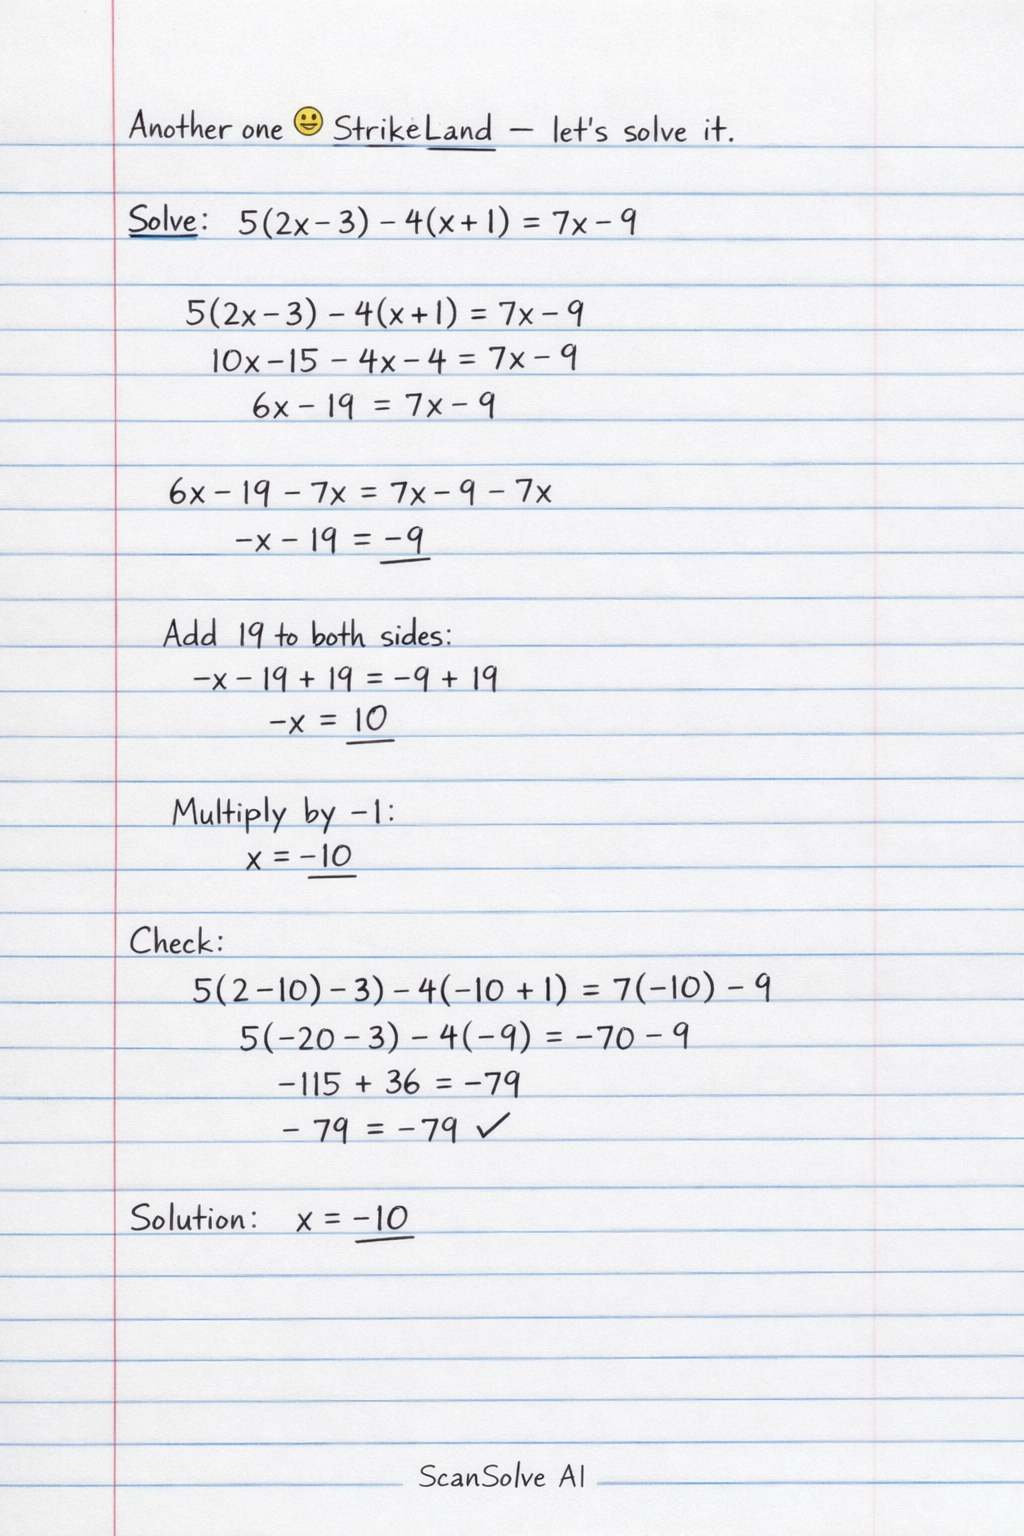 Another one 😀 StrikeLand — let's solve it.
Solve: 5(2x − 3) − 4(x + 1) = 7x − 9
5(2x − 3) − 4(x + 1) = 7x − 9
10x − 15 − 4x − 4 = 7x − 9
6x − 19 = 7x − 9
6x − 19 − 7x = 7x − 9 − 7x
−x − 19 = −9
Add 19 to both sides:
−x − 19 + 19 = −9 + 19
−x = 10
Multiply by −1:
x = −10
Check:
5(2−10) − 3) − 4(−10 + 1) = 7(−10) − 9
5(−20 − 3) − 4(−9) = −70 − 9
−115 + 36 = −79
− 79 = −79 ✓
Solution: x = −10
ScanSolve AI